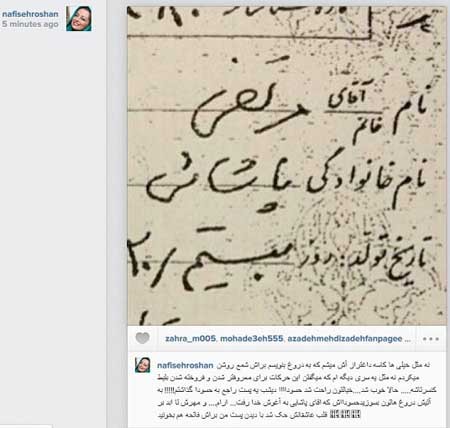 nafisehroshan
5 minutes ago
نام آقای خانم مرتضی
نام خانوادگی پاشائی
تاریخ تولد: روز بیستم /۲۰
zahra_m005, mohade3eh555, azadehmehdizadehfanpagee ...
nafisehroshan نه مثل خیلی ها کاسه داغتراز آش میشم که به دروغ بنویسم براش شمع روشن
میکردم نه مثل یه سری دیگه ام که میگفتن این حرکات برای معروفتر شدن و فروخته شدن بلیط
کنسرتاشه..... حالا خوب شد....خیالتون راحت شد حسودا!!!! دیشب یه پست راجع به حسودا گذاشتم!!!!! به
آتیش دروغ هاتون بسوزیدحسودا!!ش اقای پاشایی به آغوش خدا رفت... آرام.... و مهرش تا ابد بر
قلب عاشقانش حک شد با دیدن پست من براش فاتحه هم بخونید